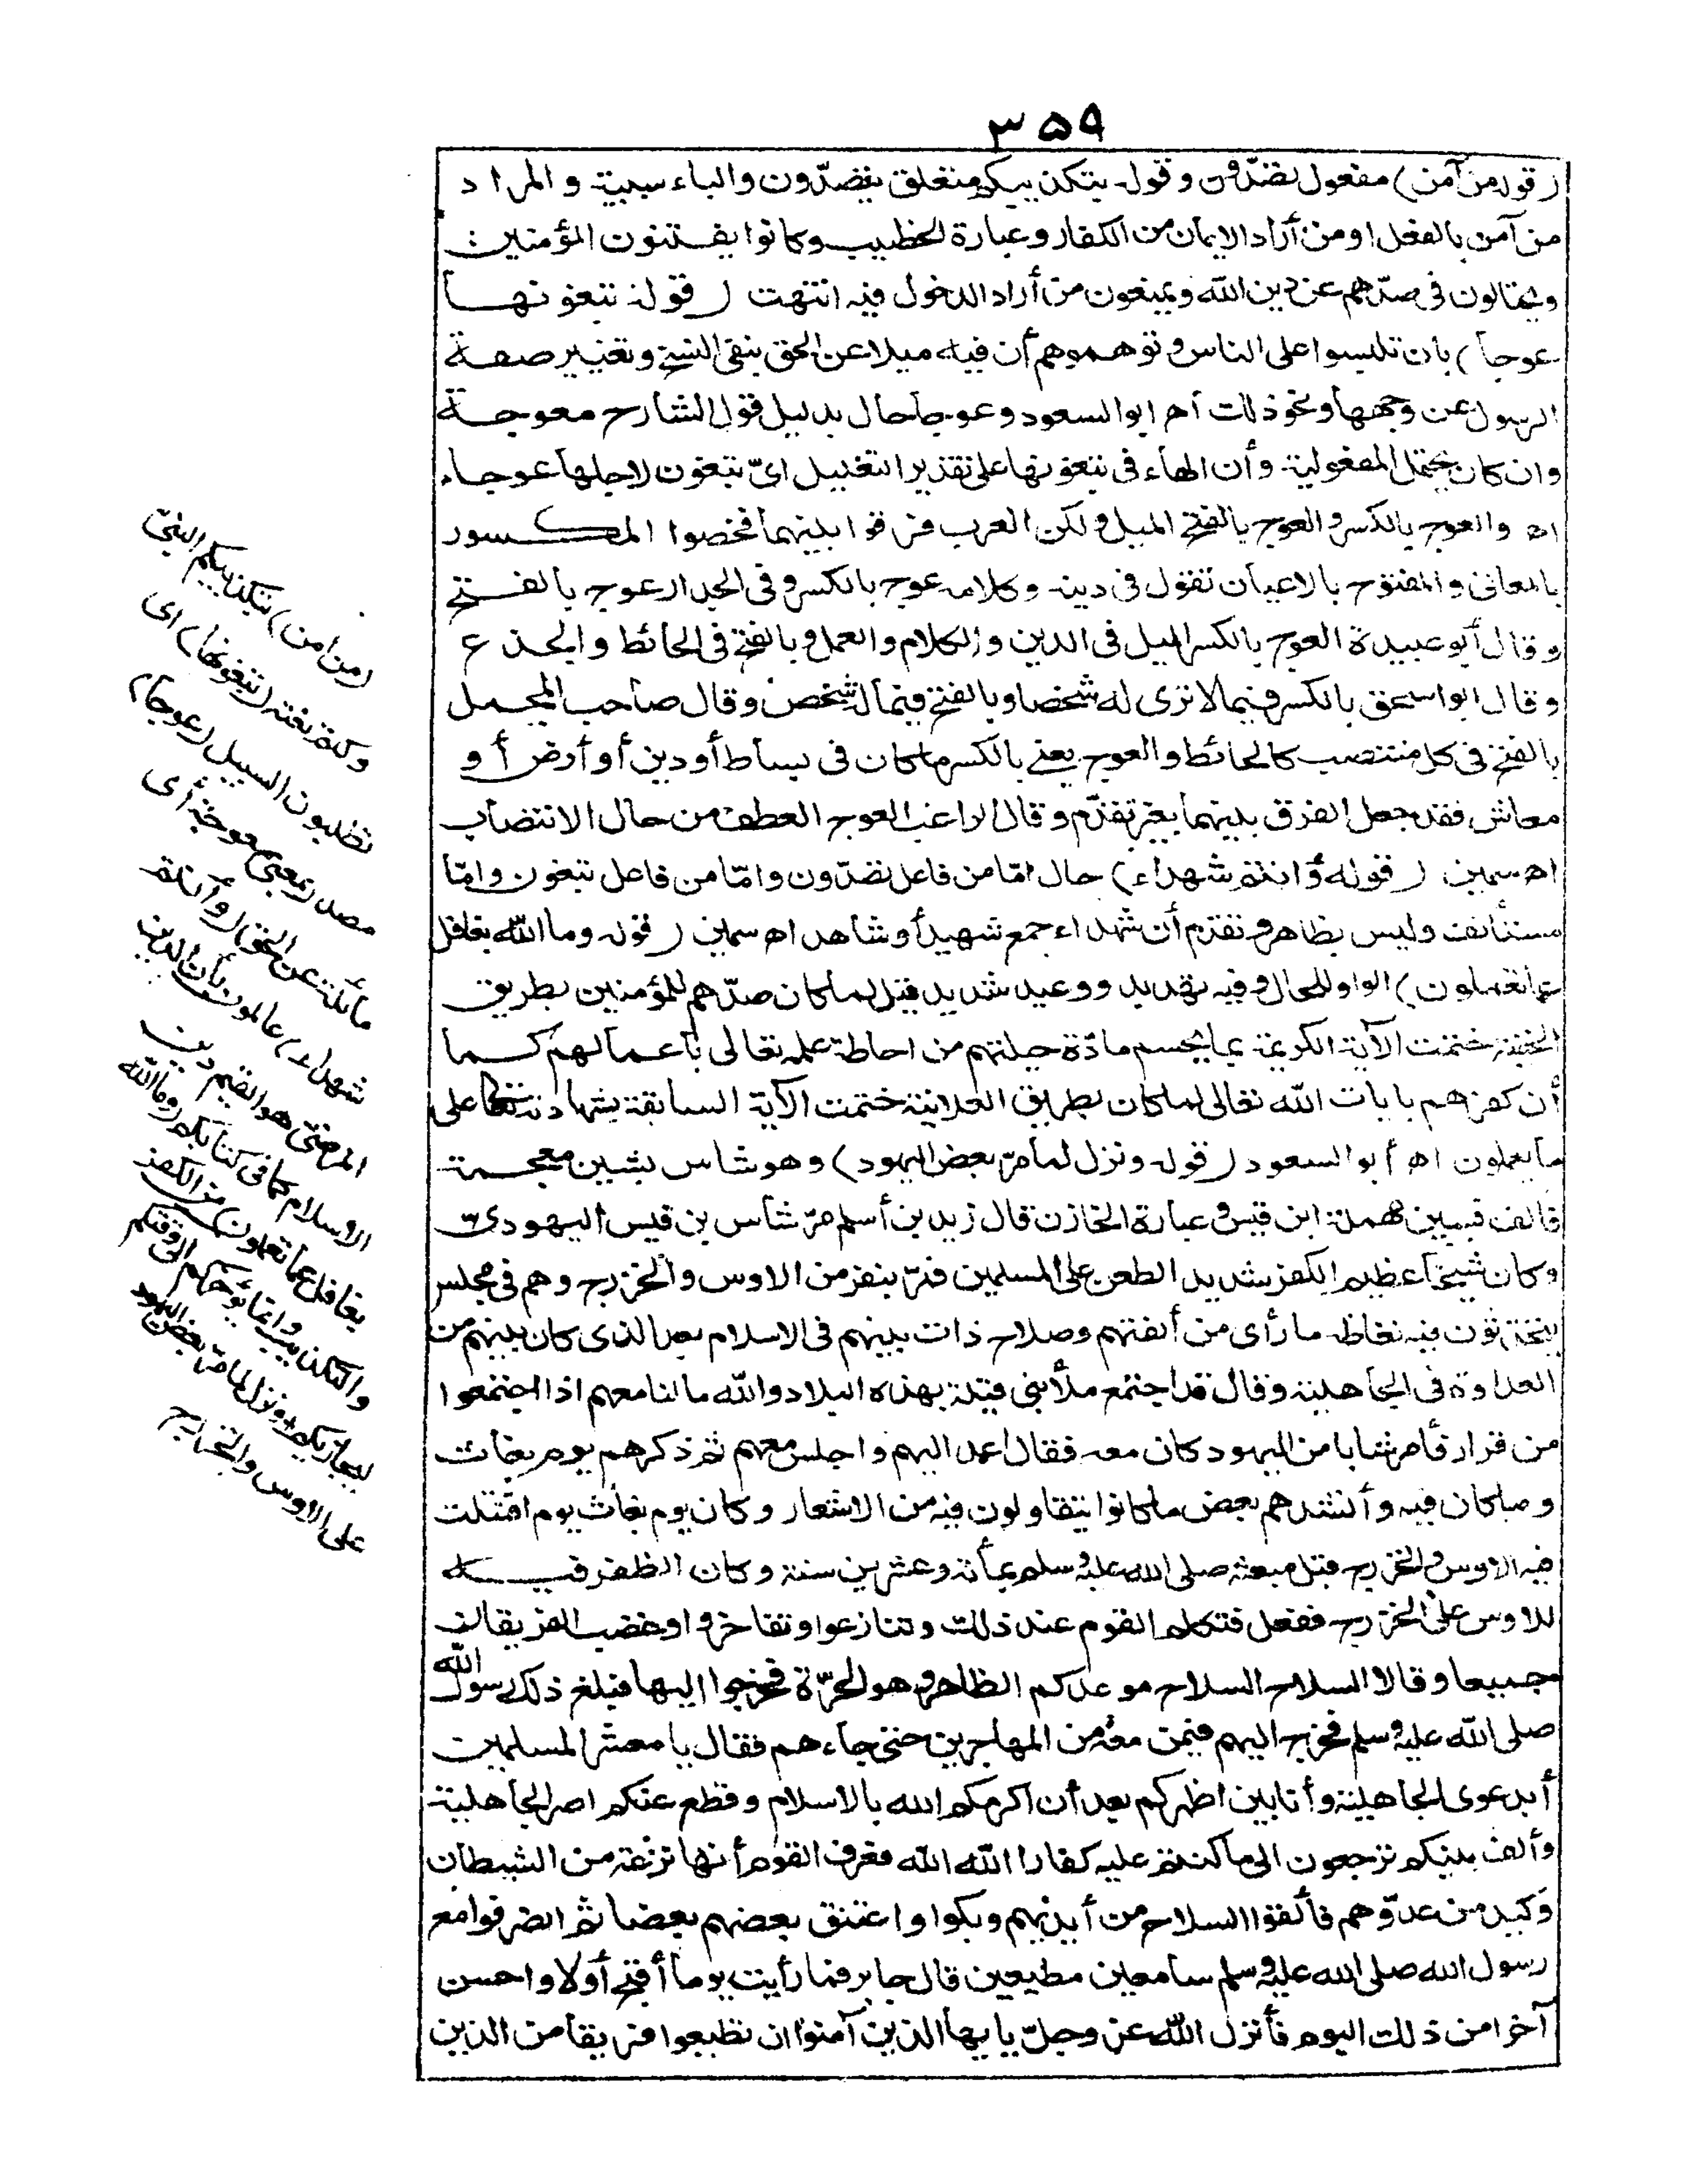 ٣٥٩
(قوله من آمن) مفعول تصدّون وقوله بتكذيبكم متعلق بتصدّون والباء سببية والمراد
من آمن بالفعل او من أراد الايمان من الكفار وعبارة الخطيب وكانوا يفتنون المؤمنين
ويحتالون فى صدّهم عن دين الله ويمنعون من أراد الدخول فيه انتهت (قوله تبغونها
عوجا) بان تلبسوا على الناس وتوهموهم أن فيه ميلا عن الحق بنفى النسخ وتغيير صفة
الرسول عن وجهها ونحو ذلك اهـ ابوالسعود وعوجا حال بدليل قول الشارح معوجة
وان كان يحتمل المفعولية وأن الهاء فى تبغونها على تقدير التعليل اىّ تبغون لاجلها عوجا
اه والعوج بالكسر والعوج بالفتح الميل ولكن العرب فرقوا بينهما فخصوا المكسور
بالمعانى والمفتوح بالاعيان تقول فى دينه وكلامه عوج بالكسر وفى الجدار عوج بالفتح
وقال أبو عبيدة العوج بالكسر الميل فى الدين والكلام والعمل وبالفتح فى الحائط والجذع
وقال ابواسحق بالكسر فيما لا ترى له شخصا وبالفتح فيما له شخص وقال صاحب المجمل
بالفتح فى كل منتصب كالحائط والعوج يعنى بالكسر ما كان فى بساط أو دين أو أرض أو
معاش فقد جعل الفرق بينهما بغير ما تقدّم وقال الراغب العوج العطف من حال الانتصاب
اه سمين (قوله وأنتم شهداء) حال امّا من فاعل تصدّون وامّا من فاعل تبغون وامّا
مستأنف وليس بظاهر وتقدم أن شهداء جمع شهيد أو شاهد اه سمين (قوله وما الله بغافل
عما تعملون) الواو للحال وفيه تهديد ووعيد شديد قيل لما كان صدّهم للمؤمنين بطريق
الخفية ختمت الآية الكريمة بما يحسم مادّة حيلتهم من احاطة علمه تعالى بأعمالهم كما
أن كفرهم بايات الله تعالى لما كان بطريق العلانية ختمت الآية السابقة بشهادته تعالى على
ما يعملون اه أبو السعود (قوله ونزل لما مرّ بعض اليهود) وهو شاس بشين معجمة
فالف فسين مهملة ابن قيس وعبارة الخازن قال زيد بن أسلم مرّ شأس بن قيس اليهودىّ
وكان شيخا عظيم الكفر شديد الطعن على المسلمين فمرّ بنفر من الاوس والخزرج وهم فى مجلس
يتحدّثون فيه فغاظه ما رأى من ألفتهم وصلاح ذات بينهم فى الاسلام بعد الذى كان بينهم من
العداوة فى الجاهلية وقال قد اجتمع ملأ بنى قيلة بهذه البلاد والله ما لنا معهم اذا اجتمعوا
من قرار فأمر شابا من اليهود كان معه فقال اعمد اليهم واجلس معهم ثم ذكرهم يوم بغاث
وما كان فيه وأنشدهم بعض ما كانوا يتقاولون فيه من الاشعار وكان يوم بغاث يوم اقتتلت
فيه الاوس والخزرج قبل مبعثه صلى الله عليه وسلم بمائة وعشرين سنة وكان الظفر فيه
للاوس على الخزرج ففعل فتكلم القوم عند ذلك وتنازعوا وتفاخروا وغضب الفريقان
جميعا وقالا السلاح السلاح موعدكم الظاهرة وهو الحرّة فخرجوا اليها فبلغ ذلك رسول الله
صلى الله عليه وسلم فخرج اليهم فيمن معه من المهاجرين حتى جاءهم فقال يا معشر المسلمين
أبدعوى الجاهلية وأنا بين اظهركم بعد أن اكرمكم الله بالاسلام وقطع عنكم اصر الجاهلية
وألف بينكم ترجعون الى ما كنتم عليه كفارا الله الله فعرف القوم أنها نزغة من الشيطان
وكيد من عدوّهم فألقوا السلاح من أيديهم وبكوا واعتنق بعضهم بعضا ثم انصرفوا مع
رسول الله صلى الله عليه وسلم سامعين مطيعين قال جابر فما رأيت يوما أقبح أولا واحسن
آخرا من ذلك اليوم فأنزل الله عز وجلّ يايها الذين آمنوا ان تطيعوا فريقا من الذين
(من امن) بتكذيبكم النبىّ
وكتم نعته (تبغونها) اى
تطلبون السبيل (عوجا)
مصدر بمعنى معوجة أى
مائلة عن الحق (وأنتم
شهداء) عالمون بأن الدين
المرضىّ هو القيم دين
الاسلام كما فى كتابكم (وما الله
بغافل عما تعملون) من الكفر
والتكذيب وانما يؤخركم الى وقتكم
ليجازيكم ونزل لما مرّ بعض اليهود
على الاوس والخزرج